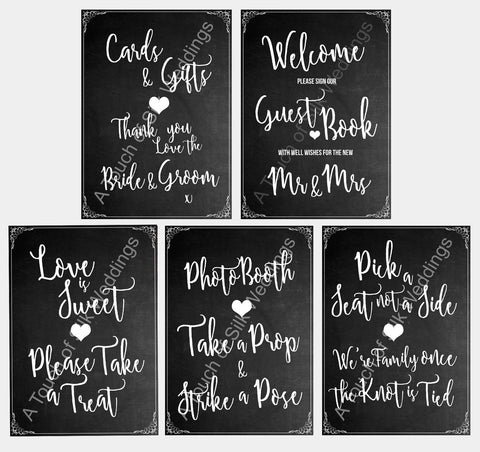 Cards
& Gifts
Thank you
Love the
Bride & Groom
XJ
Welcome
PLEASE SIGN OUR
Guest Book
WITH WELL WISHES FOR THE NEW
Mr & Mrs
Love
is
Sweet
Please Take
a Treat
PhotoBooth
Take a Prop
&
Strike a Pose
Pick a
Seat not a Side
We're Family once
the Knot is Tied
A Touch of Silk Weddings
A Touch of Silk Weddings
A Touch of Silk Weddings
A Touch of Silk Weddings
A Touch of Silk Weddings